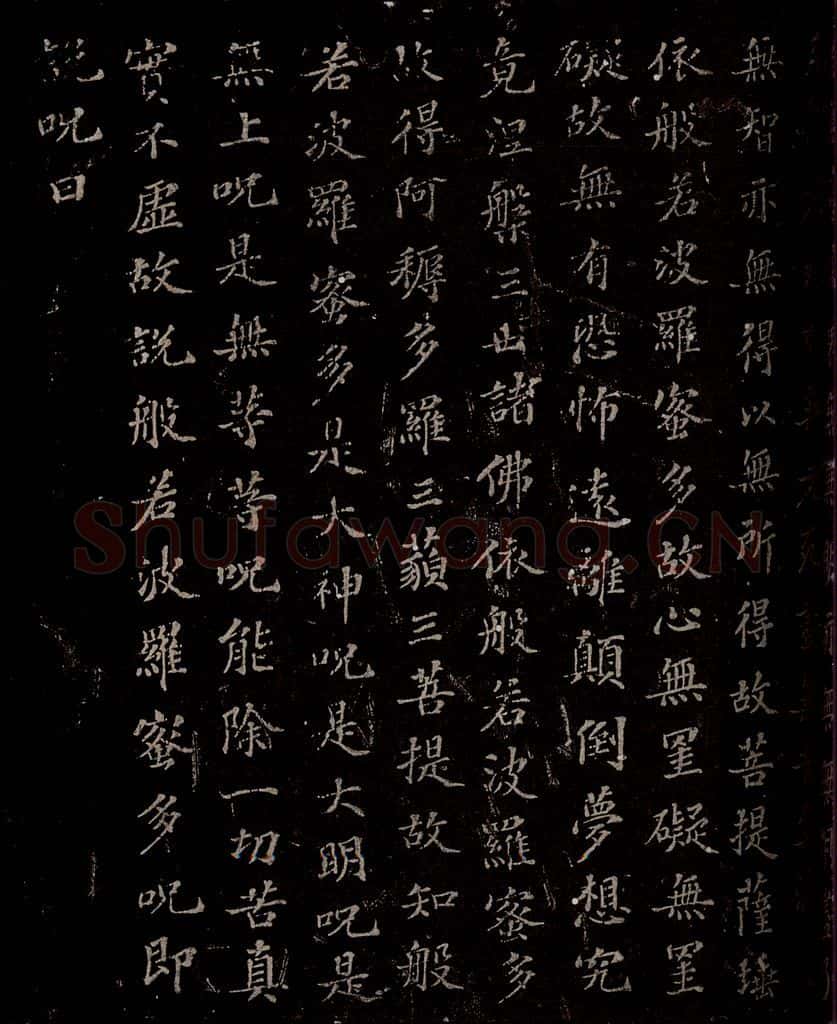 無智亦無得以無所得故菩提薩埵
依般若波羅蜜多故心無罣礙無罣
礙故無有恐怖遠離顛倒夢想究
竟涅槃三世諸佛依般若波羅蜜多
故得阿耨多羅三藐三菩提故知般
若波羅蜜多是大神呪是大明呪是
無上呪是無等等呪能除一切苦真
實不虛故說般若波羅蜜多呪即
說呪曰
Shufawang.CN